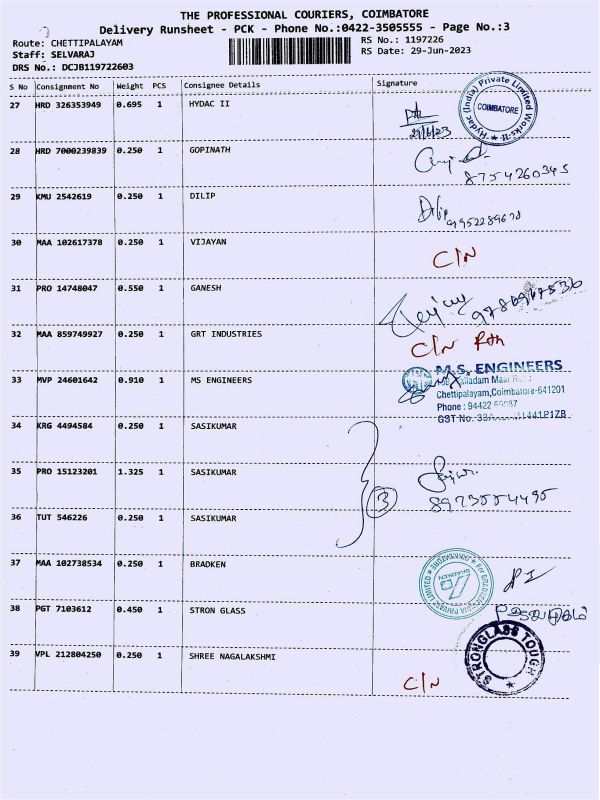 THE PROFESSIONAL COURIERS, COIMBATORE
Delivery Runsheet - PCK - Phone No.:0422-3505555 - Page No.:3
Route: CHETTIPALAYAM
RS No.: 1197226
Staff: SELVARAJ
RS Date: 29-Jun-2023
DRS No.: DCJB119722603
S No Consignment No Weight PCS Consignee Details Signature
27 HRD 326353949 0.695 1 HYDAC II
Hydac (India) Private Limited Works-II
COIMBATORE
29/6/23
28 HRD 7000239839 0.250 1 GOPINATH
8754260345
29 KMU 2542619 0.250 1 DILIP
Dilip
30 MAA 102617378 0.250 1 VIJAYAN
C/N
31 PRO 14748047 0.550 1 GANESH
32 MAA 859749927 0.250 1 GRT INDUSTRIES
C/N
33 MVP 24601642 0.910 1 MS ENGINEERS
M.S. ENGINEERS
Chettipalayam,Coimbatore-641201
Phone : 94422
GST No.
34 KRG 4494584 0.250 1 SASIKUMAR
35 PRO 15123201 1.325 1 SASIKUMAR
3
8973554495
36 TUT 546226 0.250 1 SASIKUMAR
37 MAA 102738534 0.250 1 BRADKEN
BRADKEN
PRIVATE LIMITED
38 PGT 7103612 0.450 1 STRON GLASS
STRONGLASS TOUGH
39 VPL 212804250 0.250 1 SHREE NAGALAKSHMI
C/N